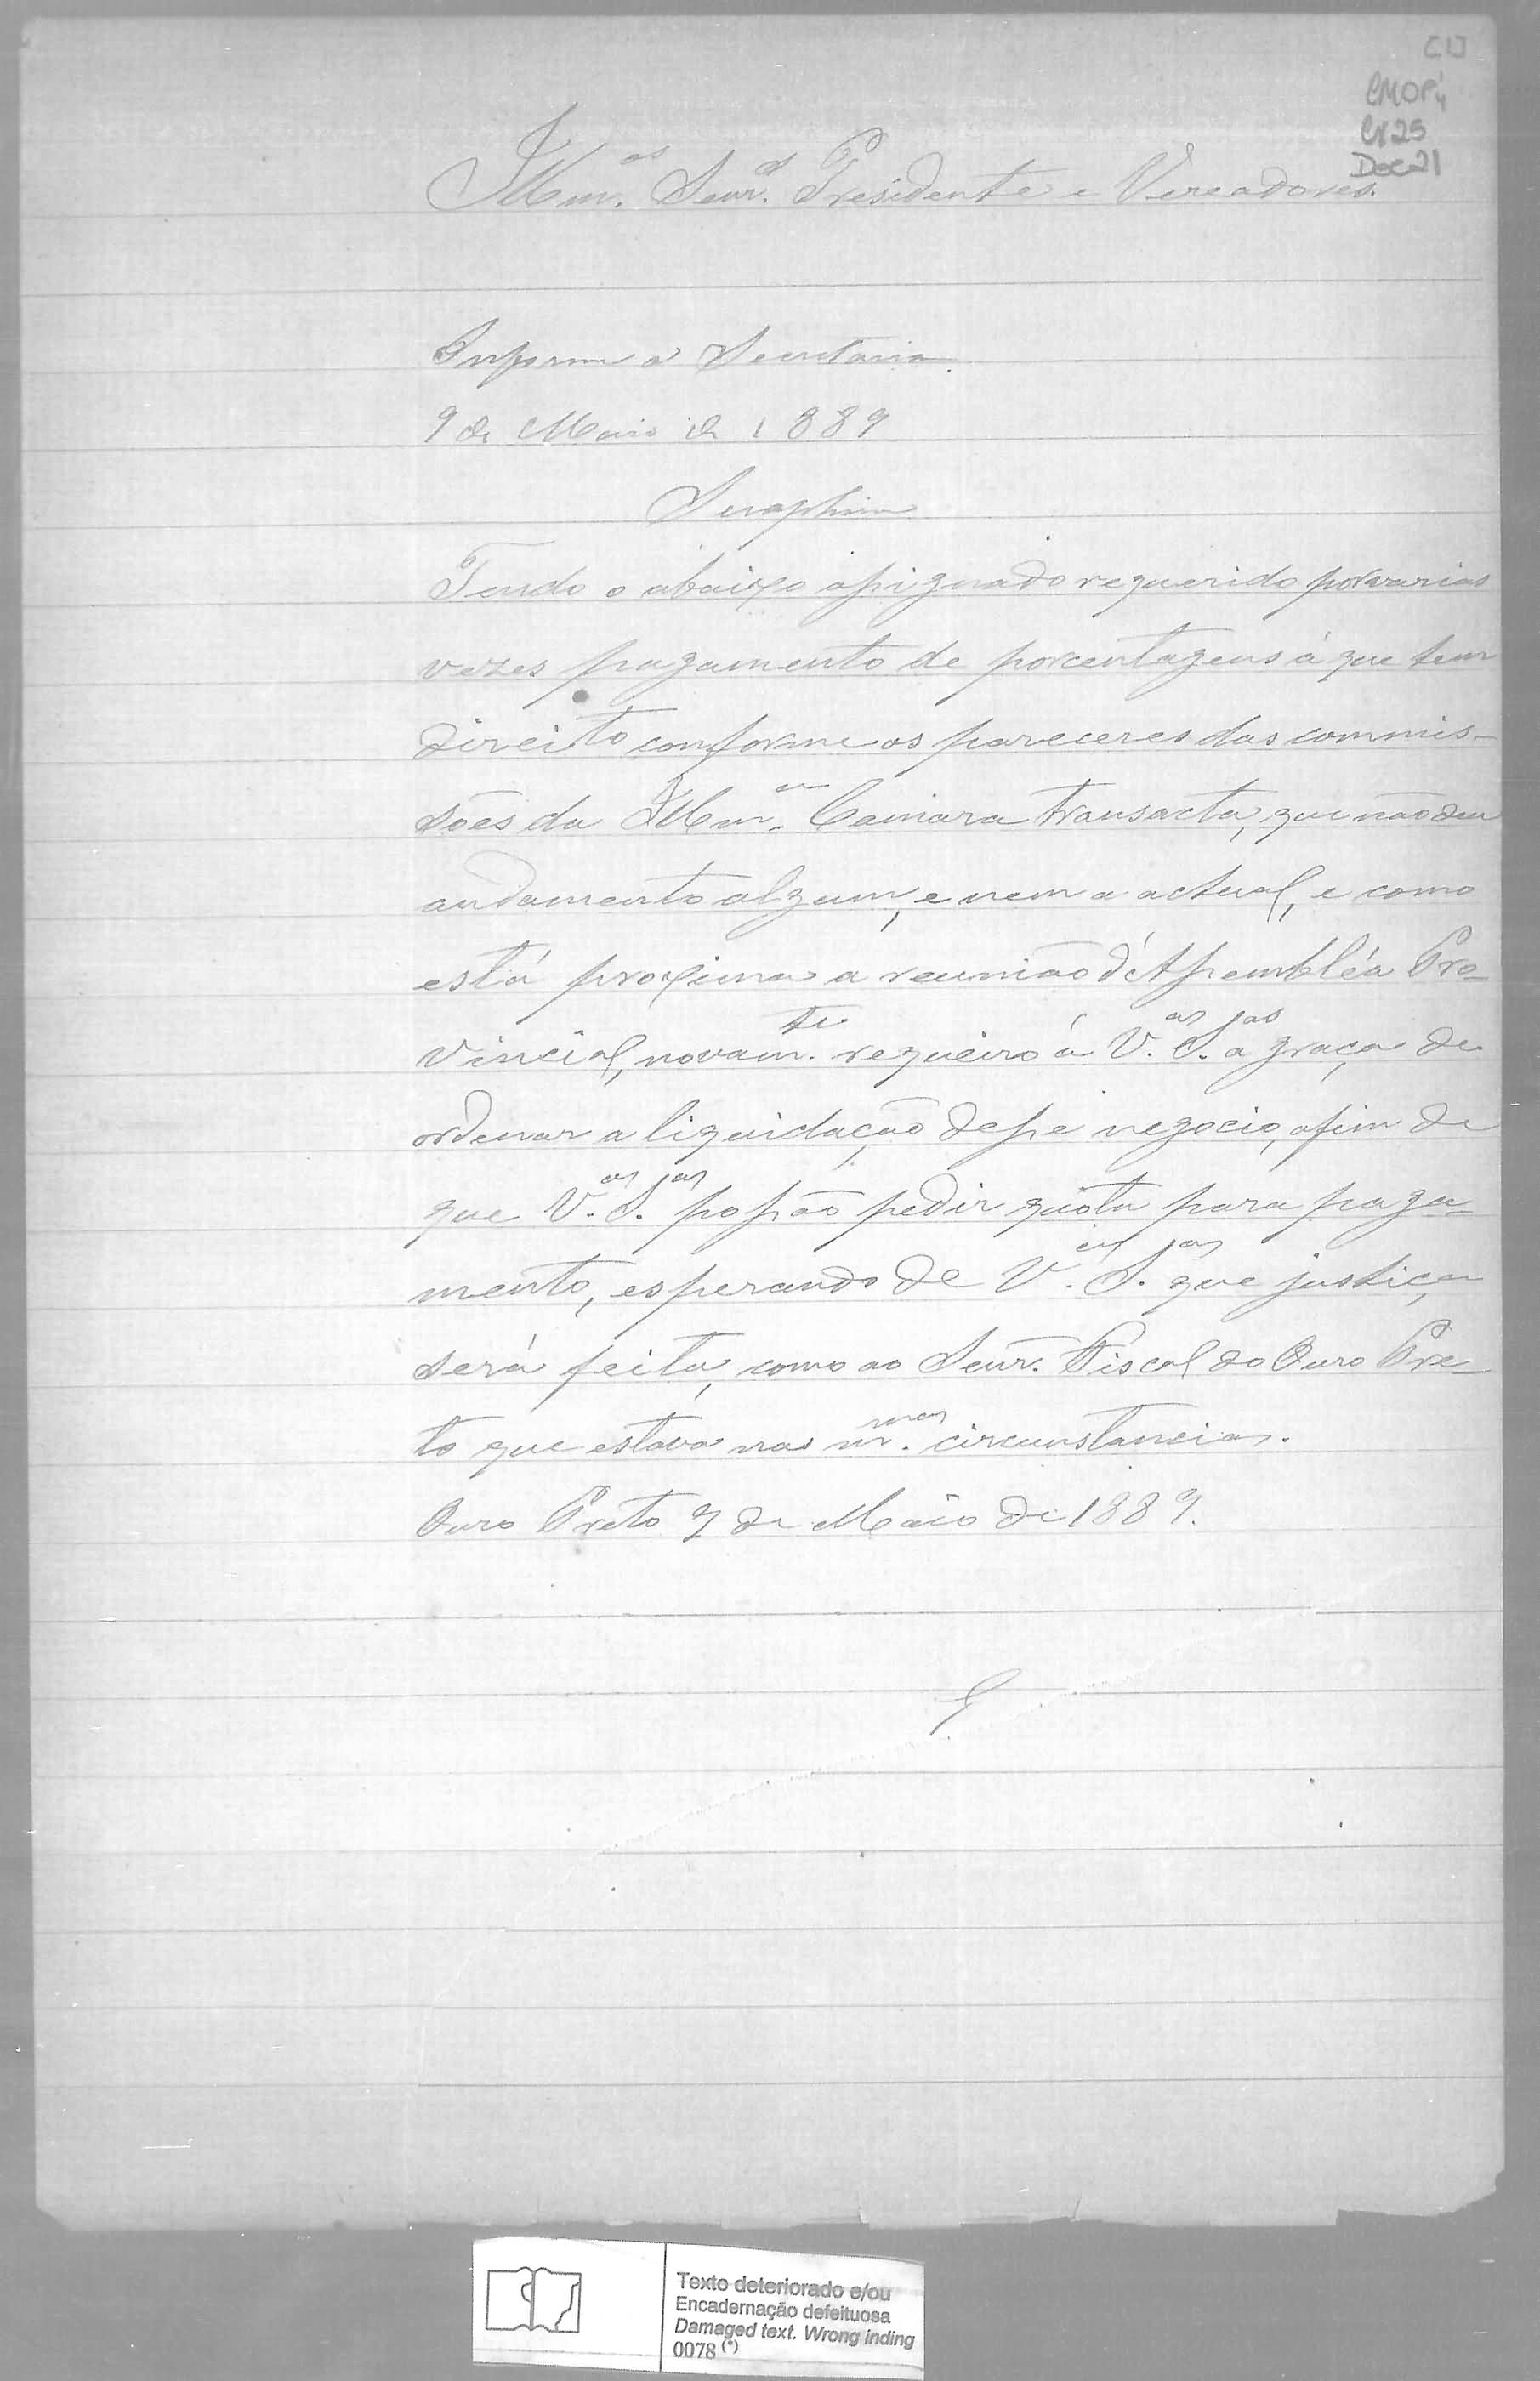 [1]
CMOP
Cx25
Doc21
Illm.os Senr.es Presidente e Vereadores.
Informe a Secretaria.
9 de Maio de 1889
Seraphim
Tendo o abaixo assignado requerido por varias
vezes pagamento de porcentagens á que tem
direito conforme os pareceres das commis-
sões da Illm.a Camara transacta, que não deu
andamento algum, e nem a actual, e como
está proxima a reunião d'Assembléa Pro-
vincial, novam.te requeiro á V.as S.as a graça de
ordenar a liquidação desse negocio, afim de
que V.as S.as possão pedir quóta para paga-
mento, esperando de V.as S.as que justiça
será feita, como ao Senr. Fiscal do Ouro Pre-
to que estava nas m.mas circunstancias.
Ouro Preto 7 de Maio de 1889.
Texto deteriorado e/ou
Encadernação defeituosa
Damaged text. Wrong inding
0078 (*)